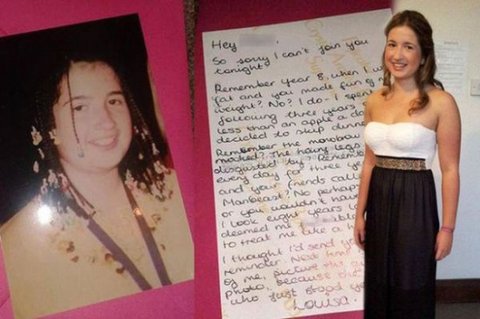 Hey
So sorry I can't join you
tonight?
Remember year 8, when I w
fat and you made fun of m
weight? No? I do - I spen
following three years
less than an apple a da
decided to skip dinne
Remember the monobrow
mocked? The hairy legs
disgusted by? Remembe
every day for three ye
and your friends calle
Manbeast? No perhap
or you wouldn't hav
I look eight years l
deemed me
to treat me like a h
I thought I'd send yo
reminder. Next time
of me, picture the
photo, because the
who just stood yo
Louisa.